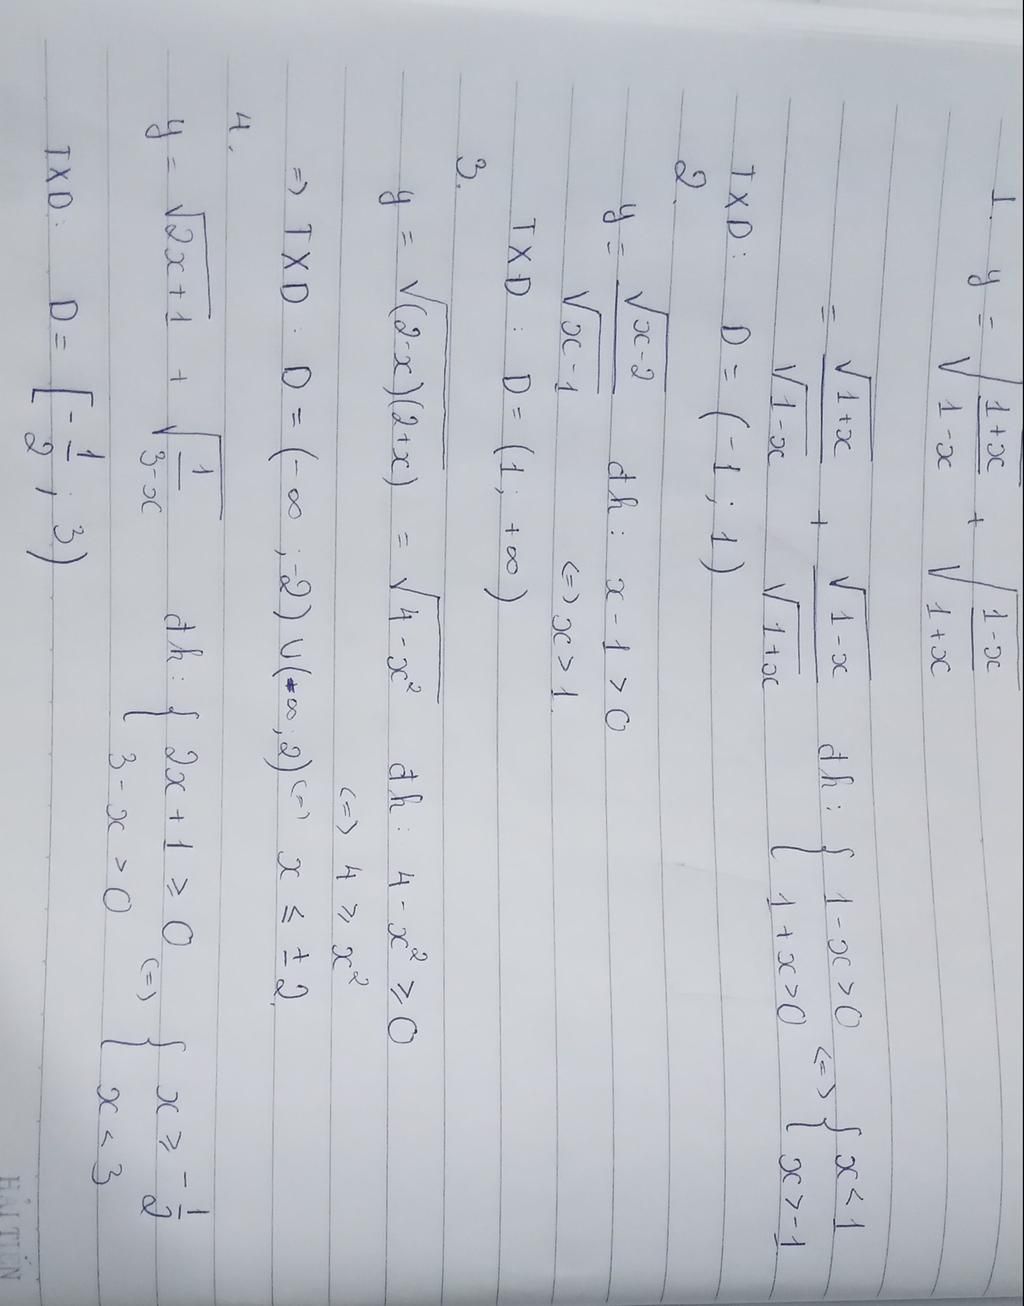 1. y = √(1+x / 1-x) + √(1-x / 1+x)
= √1+x / √1-x + √1-x / √1+x đk: { 1-x > 0 1+x > 0 <=> { x < 1 x > -1
TXD: D = (-1; 1)
2.
y = √x-2 / √x-1 đk: x - 1 > 0
<=> x > 1
TXD: D = (1; +∞)
3.
y = √(2-x)(2+x) = √4-x² đk: 4 - x² ≥ 0
<=> 4 ≥ x²
=> TXD: D = (-∞; -2) ∪ (-∞; 2) <=> x ≤ ±2
4.
y = √2x+1 + √(1 / 3-x) đk: { 2x + 1 ≥ 0 3 - x > 0 <=> { x ≥ -1/2 x < 3
TXD: D = [-1/2; 3)
HẢI TIẾN